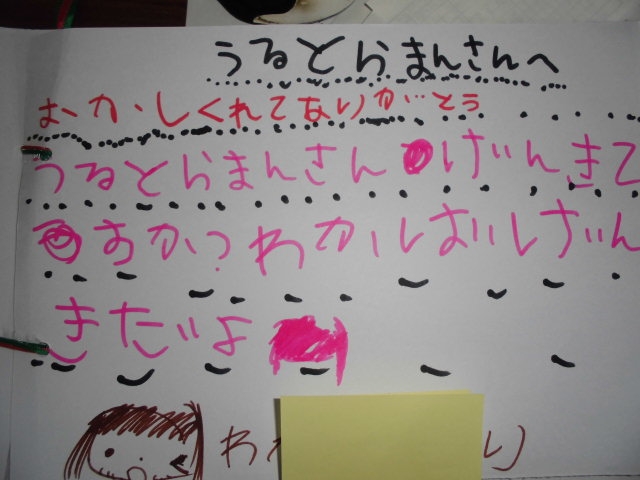 うるとらまんさんへ
おかしくれてありがとう
うるとらまんさんげんきで
すか?わかしはいげん
きだよ
わ
り